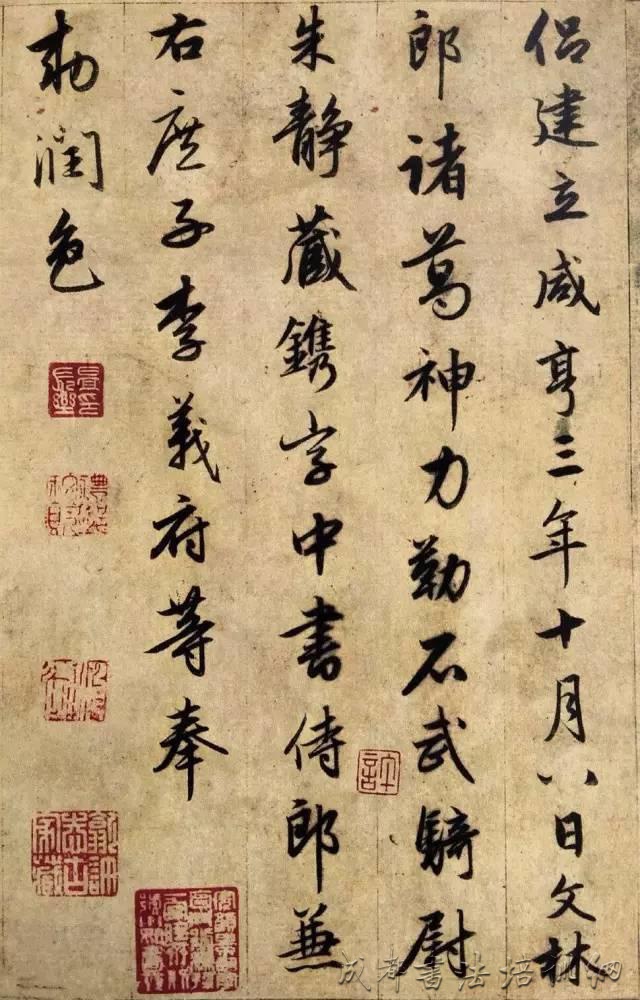 侶建立咸亨三年十月八日文林
郎諸葛神力勒石武騎尉
朱靜藏鐫字中書侍郎兼
右庶子李義府等奉
勅潤色
成都书法培训网